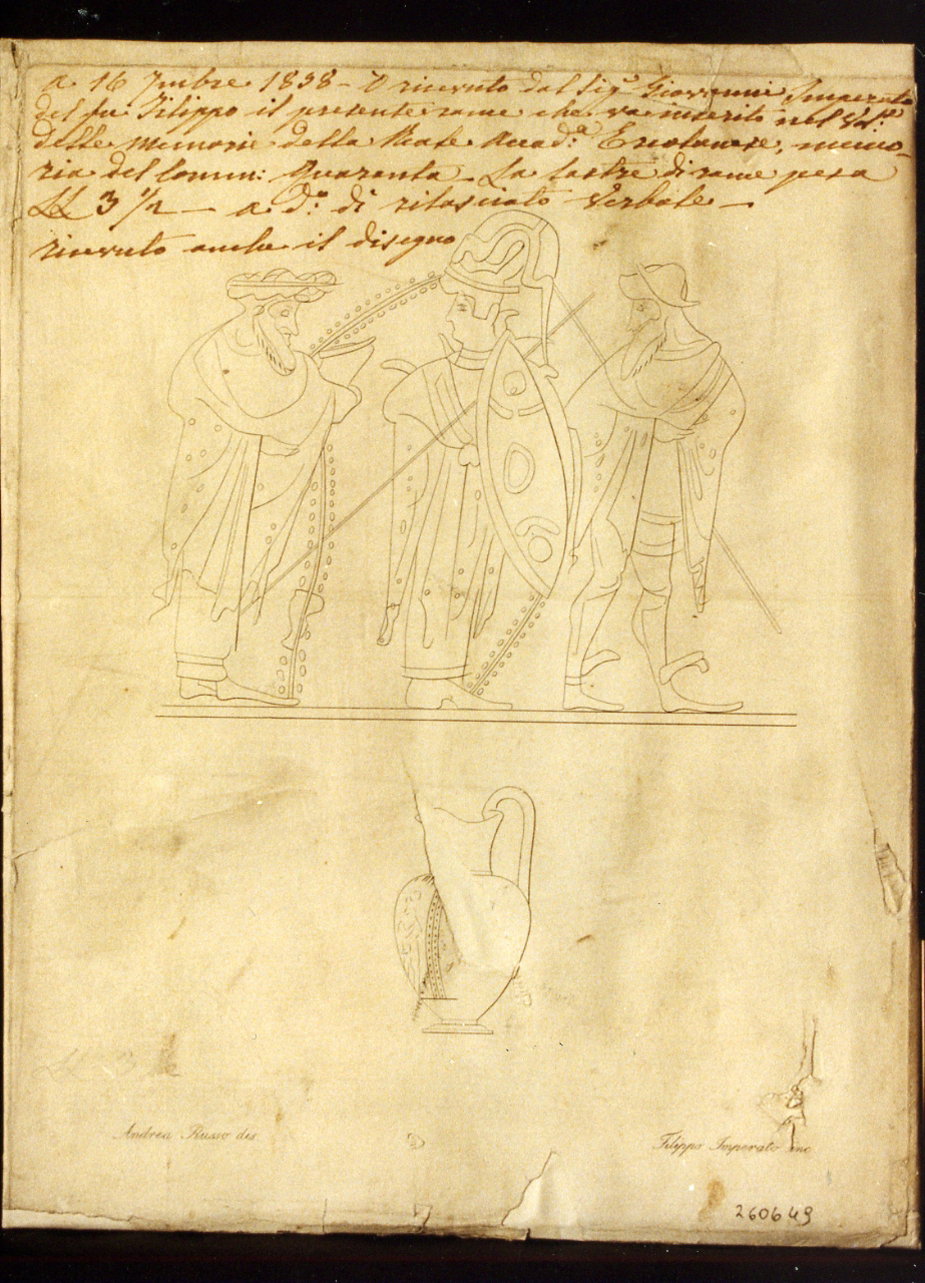 a 16 7mbre 1838 - O ricevuto dal Sig.r Giovanni Imperato
del fu Filippo il presente rame che va inserito nel Vol.e
delle Memorie della Reale Accad.a Ercolanese, memo-
ria del Comm: Quaranta - La lastre di rame pesa
LL 3 1/2 — a d.o di rilasciato Verbale —
ricevuto anche il disegno
LL 3
Andrea Russo dis
Filippo Imperato inc
260649